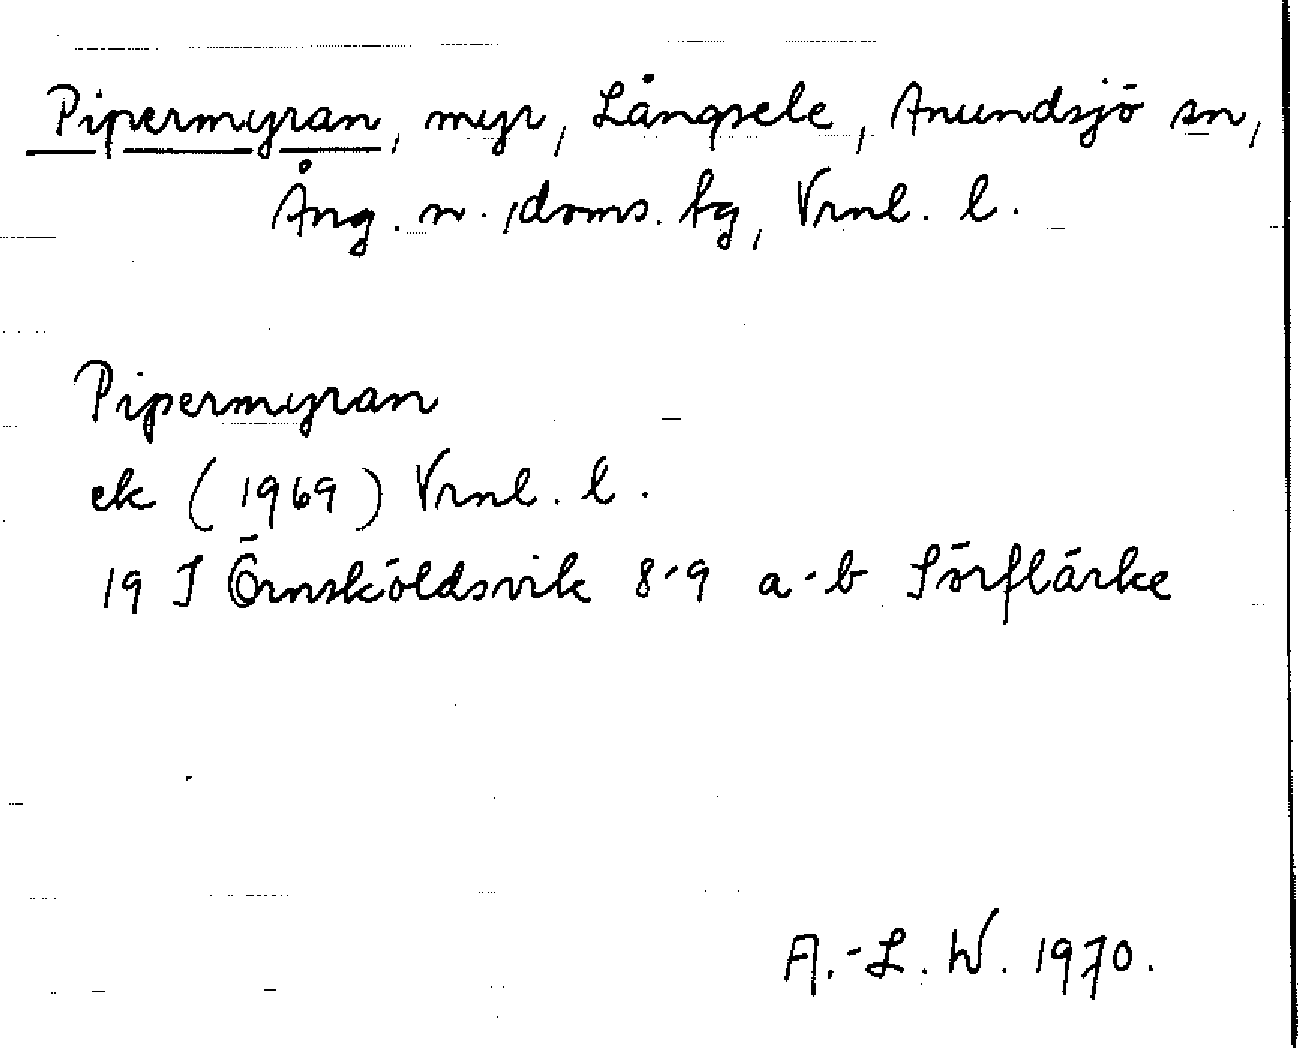 Pipermyran, myr, Långsele, Anundsjö sn,
Ång. n. doms. tg, Vrnl. l.
Pipermyran
ek (1969) Vrnl. l.
19 J Örnsköldsvik 8-9 a-b Sörflärke
A.-L. W. 1970.